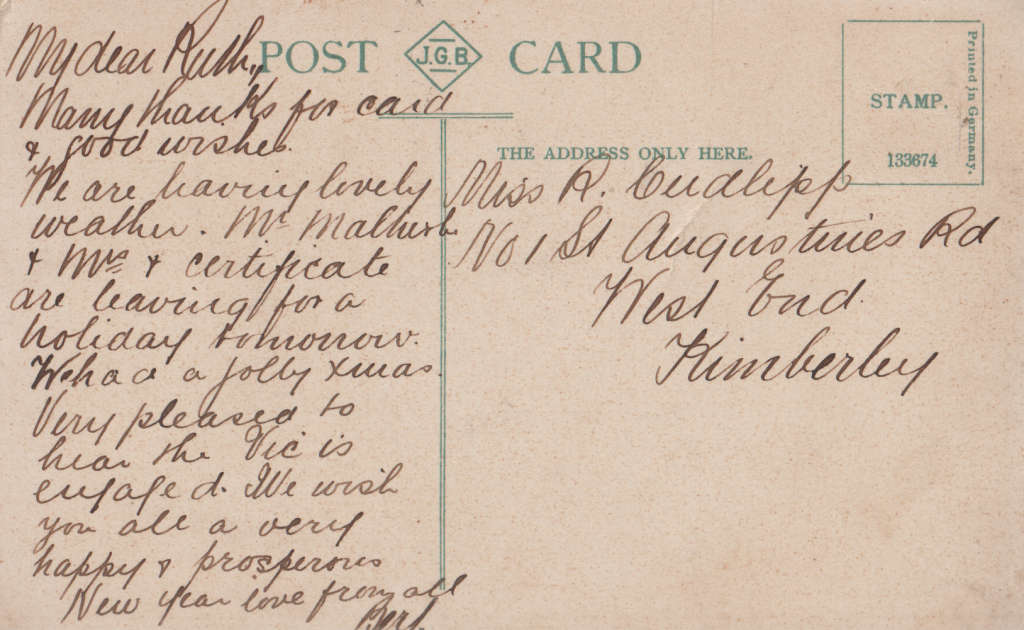 My dear Ruth,
Many thanks for card
& good wishes.
We are having lovely
weather. Mr Malherbe
& Mrs & certificate
are leaving for a
holiday tomorrow.
We had a jolly Xmas.
Very pleased to
hear the Vic is
engaged. We wish
you all a very
happy & prosperous
New year love from all
Bert.
POST J.G.B. CARD
THE ADDRESS ONLY HERE.
STAMP.
133674
Printed in Germany.
Miss R. Cudlipp
No 1 St Augustines Rd
West End
Kimberley